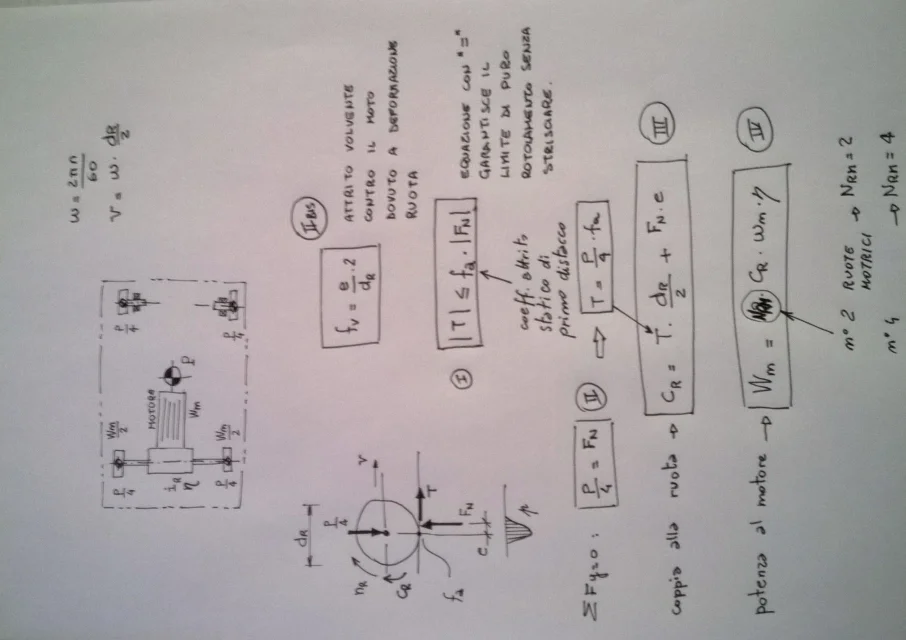 ω = 2πn/60
v = ω · dR/2
P/4
P/4
MOTORE
Wm
P
Wm/2
Wm/2
iR
η
P/4
P/4
II BIS
fv = e/dR · 2
ATTRITO VOLVENTE
CONTRO IL MOTO
DOVUTO A DEFORMAZIONE
RUOTA
dR
P/4
nR
CR
v
T
FN
e
fa
I
|T| ≤ fa · |FN|
EQUAZIONE CON "="
GARANTISCE IL
LIMITE DI PURO
ROTOLAMENTO SENZA
STRISCIARE.
coeff. attrito
statico di
primo distacco
ΣFy=0 : P/4 = FN II ⇒ T = P/4 · fa
coppia alla ruota → CR = T · dR/2 + FN · e III
potenza al motore → Wm = · CR · ωm · η IV
n° 2 RUOTE MOTRICI → NRM = 2
n° 4 → NRM = 4